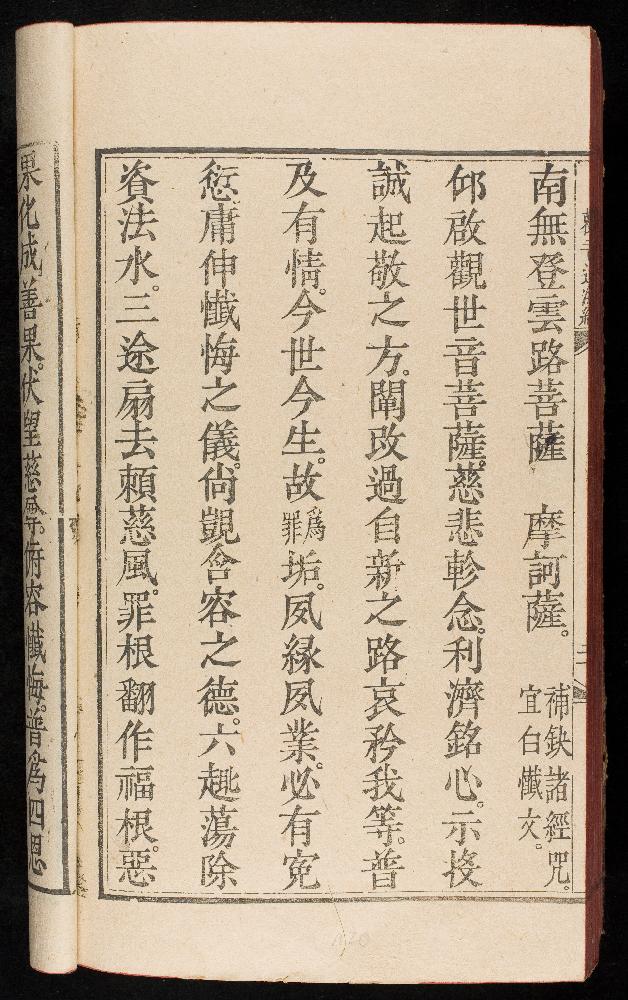 南無登雲路菩薩　摩訶薩。補缺諸經咒。
宜白懺文。
仰啟觀世音菩薩。慈悲軫念。利濟銘心。示投
誠起敬之方。闡改過自新之路哀矜我等。普
及有情。今世今生。故爲罪垢。夙緣夙業。必有冤
愆庸伸懺悔之儀。尚覬含容之德。六趣蕩除
資法水。三途扇去頼慈風。罪根翻作福根。惡
果化成善果。伏望慈尊。俯容懺悔。普爲四恩